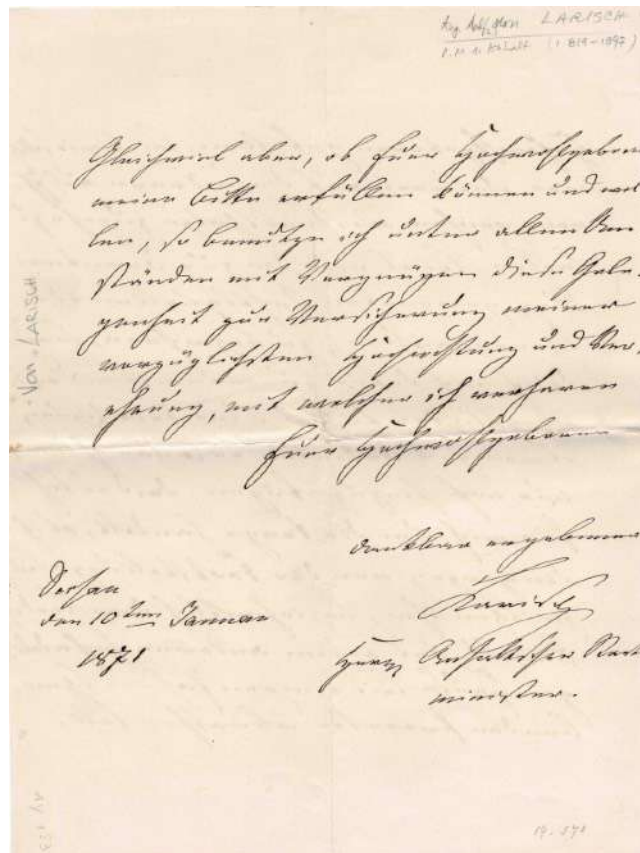 LARISCH
(1819-1897)
Gleichviel aber, ob Euer Hochwohlgeboren
meine Bitte erfüllen können und wol
len, so benutze ich unter allen Um
ständen mit Vergnügen diese Gele-
genheit zur Versicherung meiner
vorzüglichsten Hochachtung und Ver-
ehrung, mit welcher ich verharre
Euer Hochwohlgeboren
dankbar ergebener
Larisch
Herzgl Anhaltischer Staats
minister.
Dessau
den 10ten Januar
1871
Von LARISCH